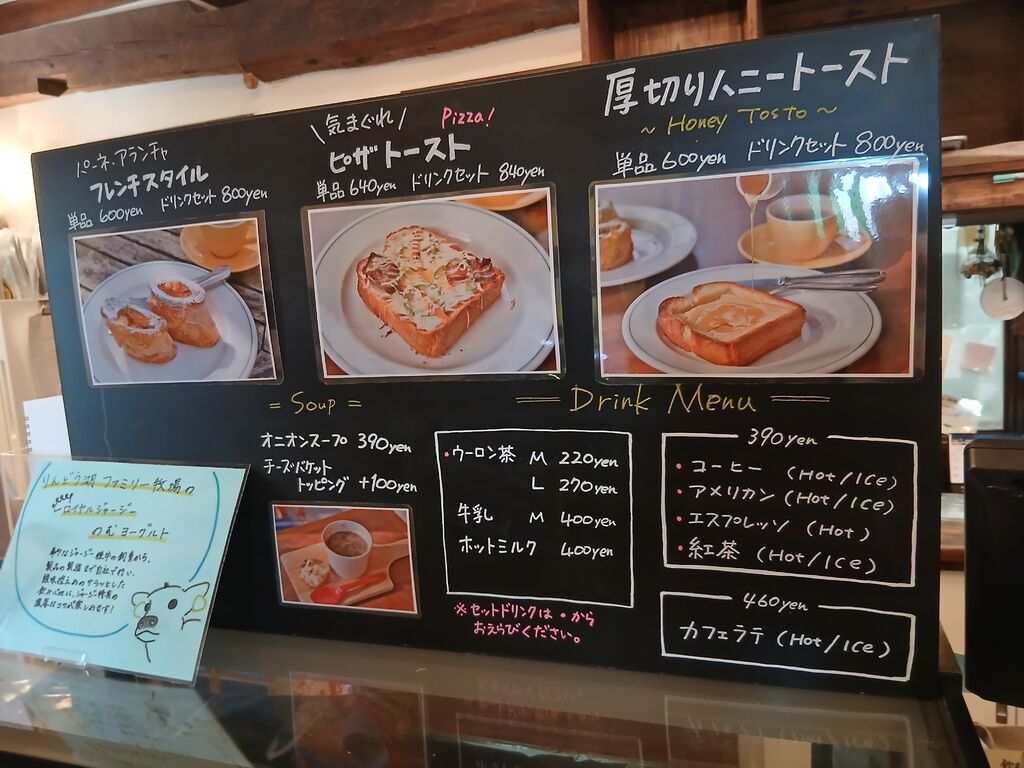 パーネ・アランチャ
フレンチスタイル
単品 600yen ドリンクセット 800yen
\気まぐれ/ Pizza!
ピザトースト
単品 640yen ドリンクセット 840yen
厚切りハニートースト
～ Honey Tosto ～
単品 600yen ドリンクセット 800yen
= Soup =
オニオンスープ 390yen
チーズバケット
トッピング +100yen
Drink Menu
・ウーロン茶 M 220yen
L 270yen
牛乳 M 400yen
ホットミルク 400yen
※セットドリンクは・から
おえらびください。
390yen
・コーヒー (Hot/Ice)
・アメリカン (Hot/Ice)
・エスプレッソ (Hot)
・紅茶 (Hot/Ice)
460yen
カフェラテ (Hot/Ice)
りんどう湖ファミリー牧場の
ロイヤルジャージー
のむヨーグルト
製品の製造まで自社で行い、